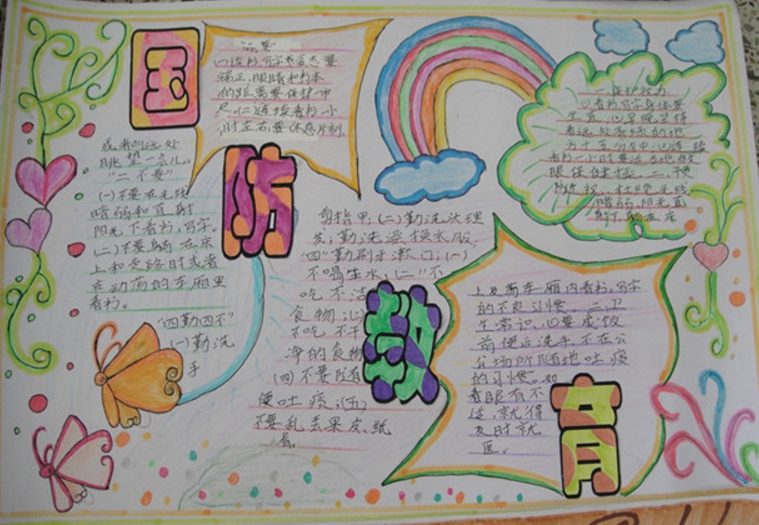 国
防
教
育
"二要"
(一)读书写字姿态要
端正,眼睛和书本
的距离要保护一
尺。(二)连续看书一小
时左右要休息片刻,
或者向远处
眺望一会儿。
"二不要"
(一)不要在光线
暗弱和直射
阳光下看书,写字。
(二)不要躺在床
上和走路时或者
在动荡的车厢里
看书。
"四勤四不"
(一)勤洗
手
剪指甲;(二)勤洗头理
发;勤洗澡换衣服,
"四"勤刷牙漱口;(一)
不喝生水;(二)"不
吃不洁
食物;(三)
不吃不干
净的食物
(四)不要随
便吐痰;(五)
不要乱丢果皮纸
屑。
一、保护视力
看书写字身体要
坐直,
看远处
十五分
看书一小时要
眼保健操。二、
光线
暗弱,阳光直
射下躺在床
上及 车厢内看书,写字
的不良习惯。二、卫
生常识,(一)要成饭
前便后洗手,不在公
公场所随地吐痰
的习惯。如
看眼有不
适,就得
及时就
医。